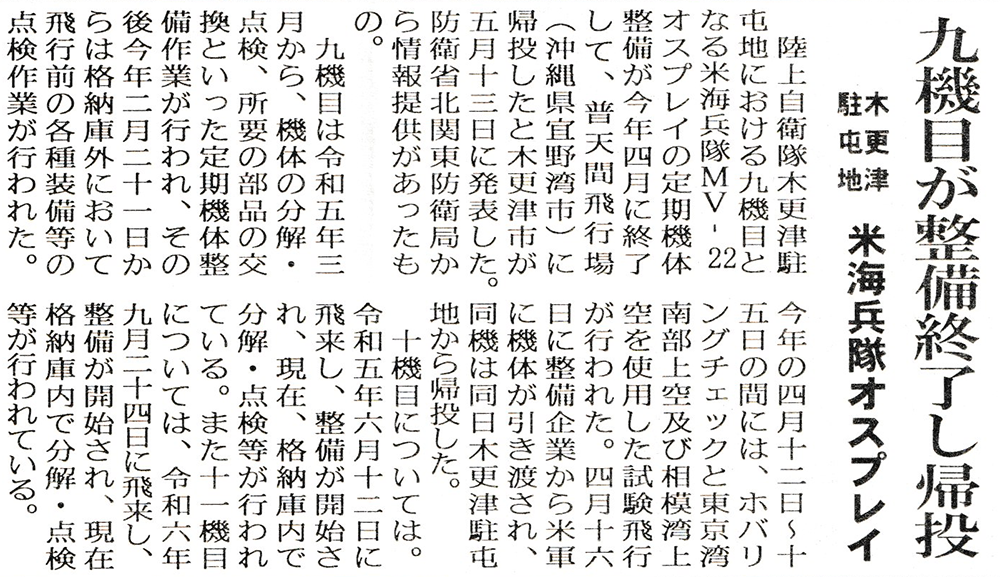 九機目が整備終了し帰投
木更津
駐屯地
米海兵隊オスプレイ
　陸上自衛隊木更津駐
屯地における九機目と
なる米海兵隊MV-22
オスプレイの定期機体
整備が今年四月に終了
して、普天間飛行場
（沖縄県宜野湾市）に
帰投したと木更津市が
五月十三日に発表した。
防衛省北関東防衛局か
ら情報提供があったも
の。
　九機目は令和五年三
月から、機体の分解・
点検、所要の部品の交
換といった定期機体整
備作業が行われ、その
後今年二月二十一日か
らは格納庫外において
飛行前の各種装備等の
点検作業が行われた。
今年の四月十二日～十
五日の間には、ホバリ
ングチェックと東京湾
南部上空及び相模湾上
空を使用した試験飛行
が行われた。四月十六
日に整備企業から米軍
に機体が引き渡され、
同機は同日木更津駐屯
地から帰投した。
　十機目については。
令和五年六月十二日に
飛来し、整備が開始さ
れ、現在、格納庫内で
分解・点検等が行われ
ている。また十一機目
については、令和六年
九月二十四日に飛来し、
整備が開始され、現在
格納庫内で分解・点検
等が行われている。